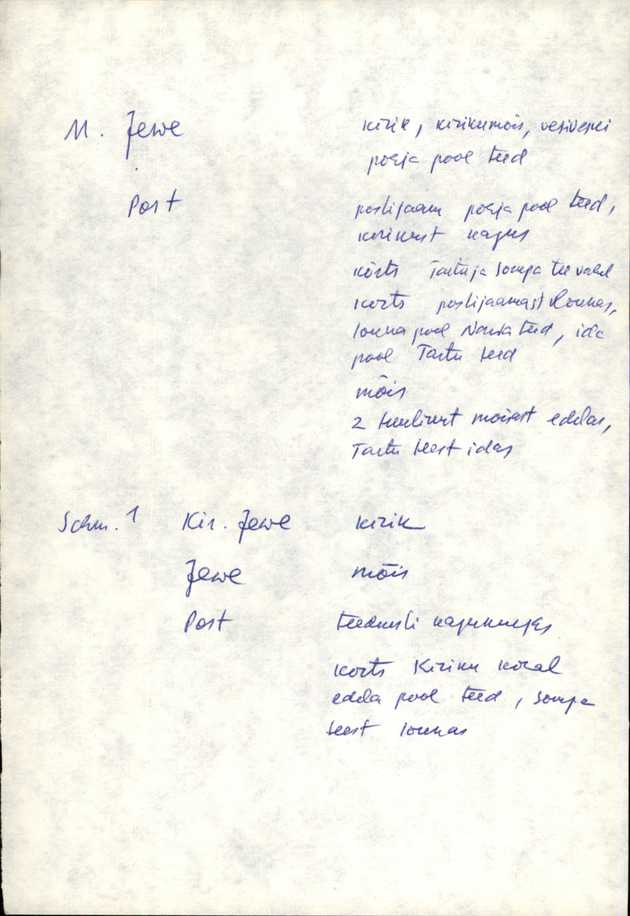 M. Jewe kirik, kirikumõis, vesiveski
põhja pool teed
Post postijaam põhja pool teed,
kirikust kagus
kõrts Tartu ja Sompa tee vahel
kõrts postijaamast lõunas,
lõuna pool Narva teed, ida
pool Tartu teed
mõis
2 tuulikut mõisast edelas,
Tartu teest idas
Schm. 1 Kir. Jewe kirik
Jewe mõis
Post
kõrts kiriku kõrval
edela pool teed, Sompa
teest lõunas